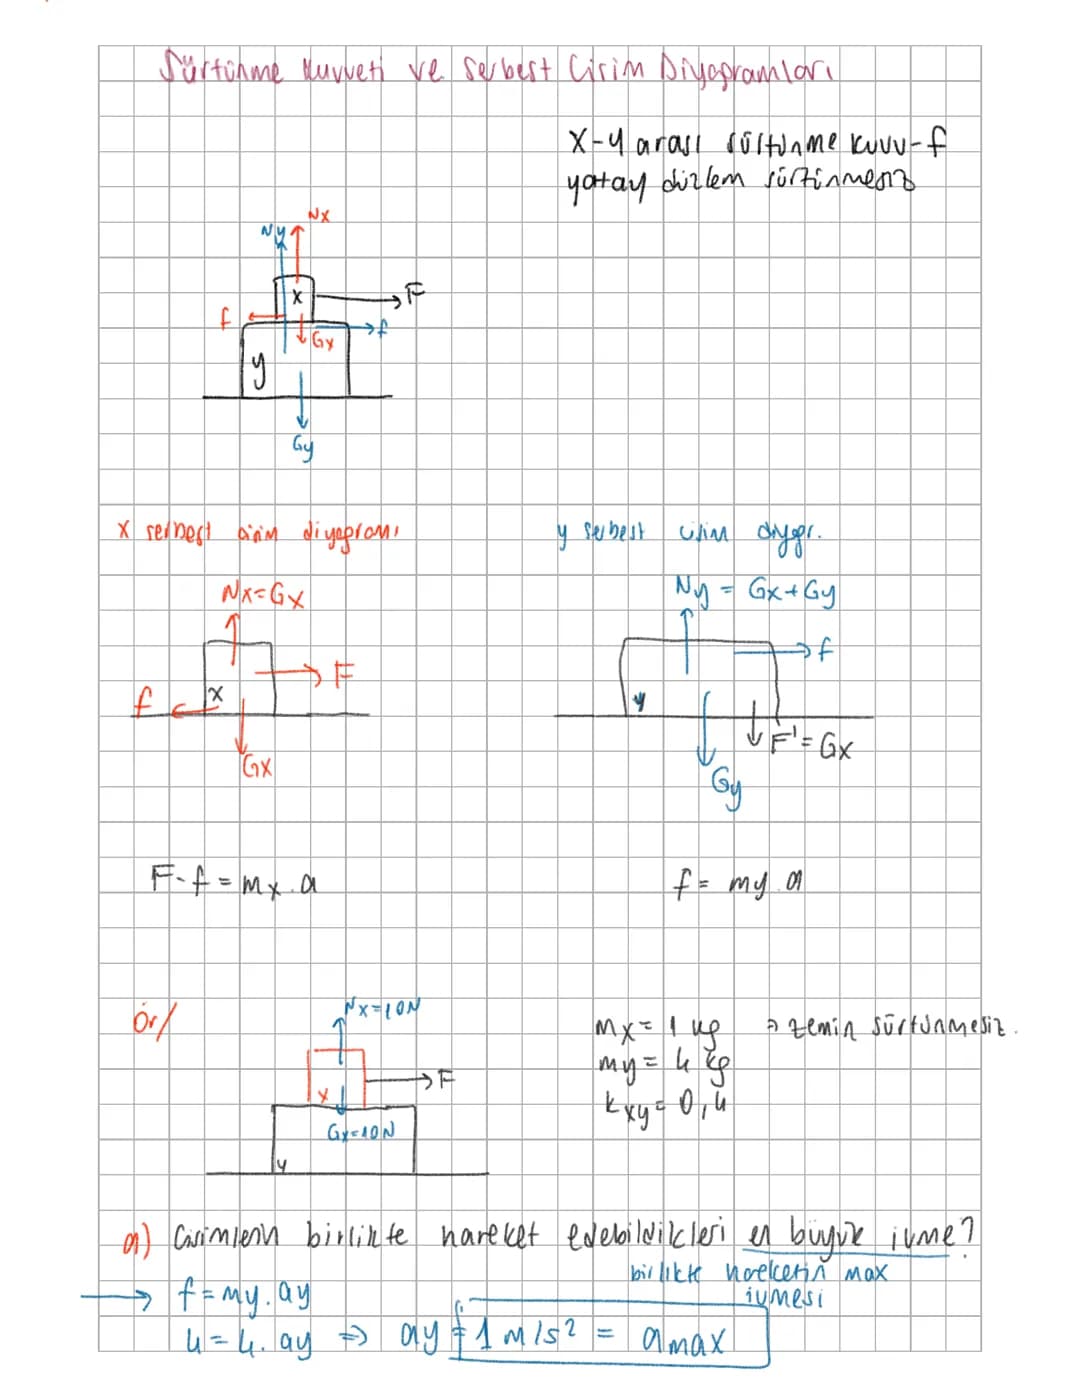 Sürtünme Kuvveti ve Serbest Cisim Diyagramları
x-y arası sürtünme kuvv-f
yatay düzlem sürtünmesiz
Nx
Ny
x
F
f
f
Gx
y
Gy
x serbest cisim diyagramı
y serbest cisim diyagr.
Nx=Gx
Ny = Gx+Gy
F
f
f
x
y
F'= Gx
Gx
Gy
F-f = mx.a
f = my.a
Ör/
Nx=10N
mx = 1 kg → zemin sürtünmesiz.
my = 4 kg
F
x
kxy = 0,4
Gx=10N
y
a) Cisimlerin birlikte hareket edebildikleri en büyük ivme?
birlikte hareketin max
ivmesi
→ f = my.ay
4 = 4.ay ⇒ ay = 1 m/s² = amax